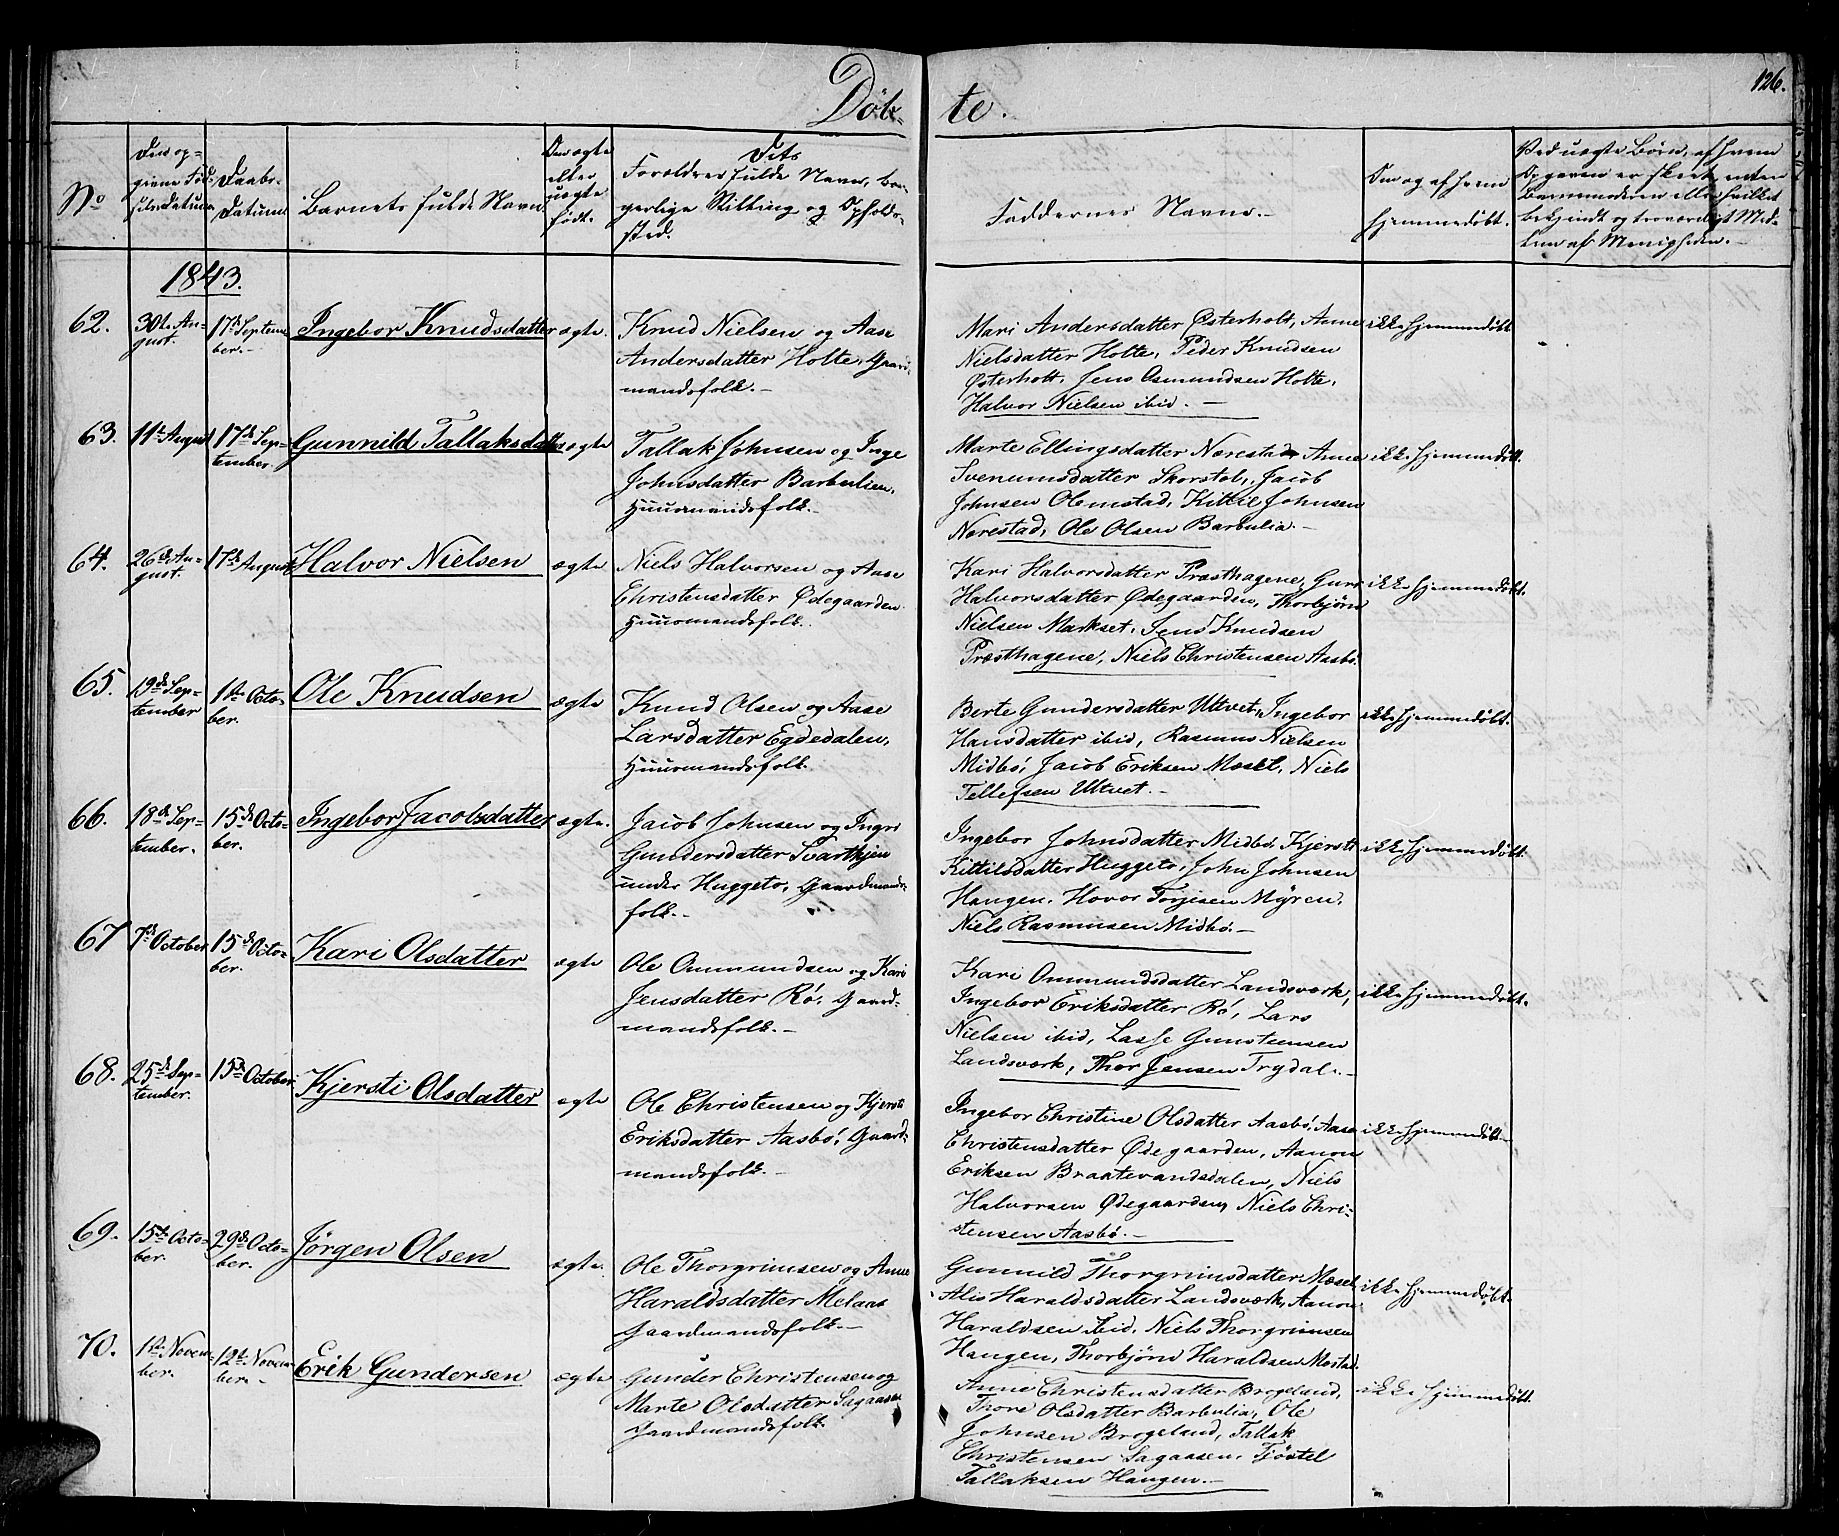 Døb-
te.
126.
No
Den op-
givne Fød-
selsdatum
Daabs-
Datum
Barnets fulde Navn.
Om ægte
eller
uægte
født.
Dets
Forældres fulde Navn, bor-
gerlige Stilling og Opholds-
sted.
Faddernes Navne.
Om og af hvem
hjemmedøbt.
Ved uægte Børn, af hvem
Opgaven er skeet, enten
Barnmoderen eller hvilket
bekjendt og troværdigt Med-
lem af Menigheden.
1843.
62.
30te Au-
gust.
17de Septem-
ber.
Ingebor Knudsdatter
ægte.
Knud Nielsen og Aase
Andersdatter Holte, Gaard-
mandsfolk.
Mari Andersdatter Østerholt, Anne
Nielsdatter Holte, Peder Knudsen
Østerholt, Jens Osmundsen Holte,
Halvor Nielsen ibid.
ikke hjemmedøbt
63.
11te August
17de Sep-
tember.
Gunnild Tallaksdatter
ægte
Tallak Johnsen og Inge
Johnsdatter Barbulien,
Huusmandsfolk.
Marte Ellingsdatter Nærestad, Anne
Svenumsdatter Skorstol, Jacob
Johnsen Olemstad, Kittil Johnsen
Nærestad, Ole Olsen Barbulia.
ikke hjemmedøbt.
64.
26de Au-
gust.
17de August
Halvor Nielsen
ægte
Niels Halvorsen og Aase
Christensdatter Ødegaarden
Huusmandsfolk.
Kari Halvorsdatter Præsthagene, Guro
Halvorsdatter Ødegaarden, Thorbjørn
Nielsen Markset, Jens Knudsen
Præsthagene, Niels Christensen Aasbø.
ikke hjemmedøbt.
65.
19de Sep-
tember
1ste Octo-
ber.
Ole Knudsen
ægte
Knud Olsen og Aase
Larsdatter Egdedalen,
Huusmandsfolk.
Berte Gundersdatter Utvet, Ingebor
Hansdatter ibid, Rasmus Nielsen
Midbø, Jacob Eriksen Mosel, Niels
Tellefsen Utvet.
ikke hjemmedøbt.
66.
18de Sep-
tember.
15de Octo-
ber.
Ingebor Jacobsdatter
ægte.
Jacob Johnsen og Ingri
Gundersdatter Svartkjen
under Huggeto, Gaardmands-
folk.
Ingebor Johnsdatter Midbø, Kjersti
Kittilsdatter Huggeto, John Johnsen
Haugen, Hovor Torjisen Myren,
Niels Rasmusen Midbø.
ikke hjemmedøbt.
67
7de October
15de Octo-
ber.
Kari Olsdatter
ægte
Ole Ommundsen og Kari
Jensdatter Rø, Gaard-
mandsfolk.
Kari Ommundsdatter Landsværk,
Ingebor Eriksdatter Rø, Lars
Nielsen ibid, Lasse Gunsteensen
Landsværk, Thor Jensen Trydal.
ikke hjemmedøbt.
68.
25de Sep-
tember.
15de October
Kjersti Olsdatter
ægte
Ole Christensen og Kjersti
Eriksdatter Aasbø, Gaard-
mandsfolk.
Ingebor Christine Olsdatter Aasbø, Aase
Christensdatter Ødegaarden, Aanon
Eriksen Braatevandsdalen, Niels
Halvorsen Ødegaarden, Niels Chri-
stensen Aasbø.
ikke hjemmedøbt.
69.
15de Octo-
ber.
29de Octo-
ber.
Jørgen Olsen
ægte.
Ole Thorgrimsen og Anne
Haraldsdatter Melaas
Gaardmandsfolk.
Gunnild Thorgrimsdatter Mosel
Alis Haraldsdatter Landsværk, Aanon
Haraldsen ibid, Niels Thorgrimsen
Haugen, Thorbjørn Haraldsen Mostad.
ikke hjemmedøbt.
70.
1ste Novem-
ber.
12te Novem-
ber.
Erik Gundersen
ægte
Gunder Christensen og
Marte Olsdatter Sagaasen
Gaardmandsfolk.
Anne Christensdatter Brogeland,
Thore Olsdatter Barbulia, Ole
Johnsen Brogeland, Tallak
Christensen Sagaasen, Tjøstel
Tallaksen Haugen.
ikke hjemmedøbt.